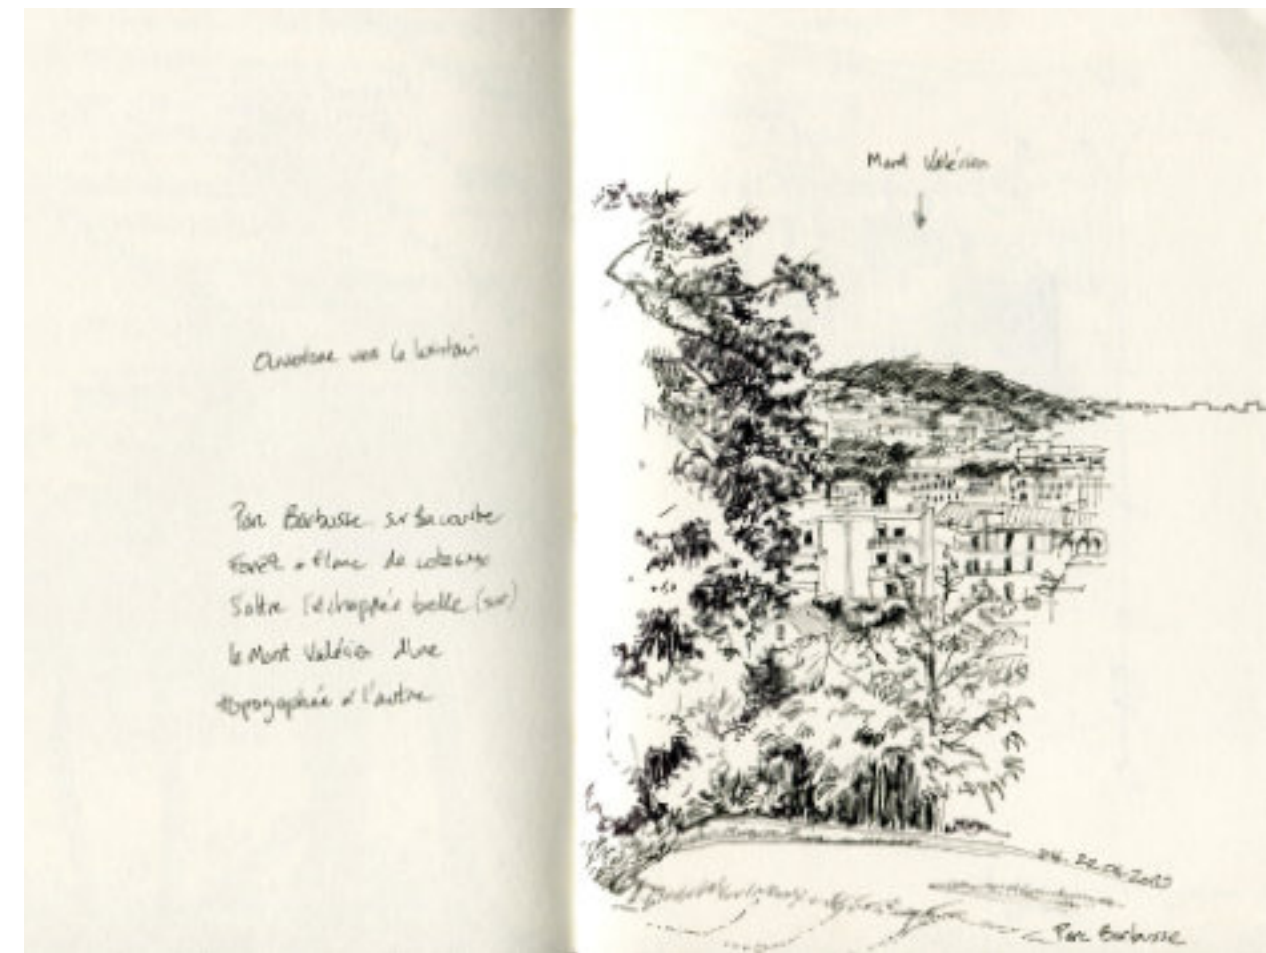 Ouverture vers le lointain
Parc Barbusse sur
Forêt à flanc de coteaux
l'échappée belle (sur)
le Mont Valérien d'une
topographie à l'autre
Mont Valérien
22.06.2010
Parc Barbusse